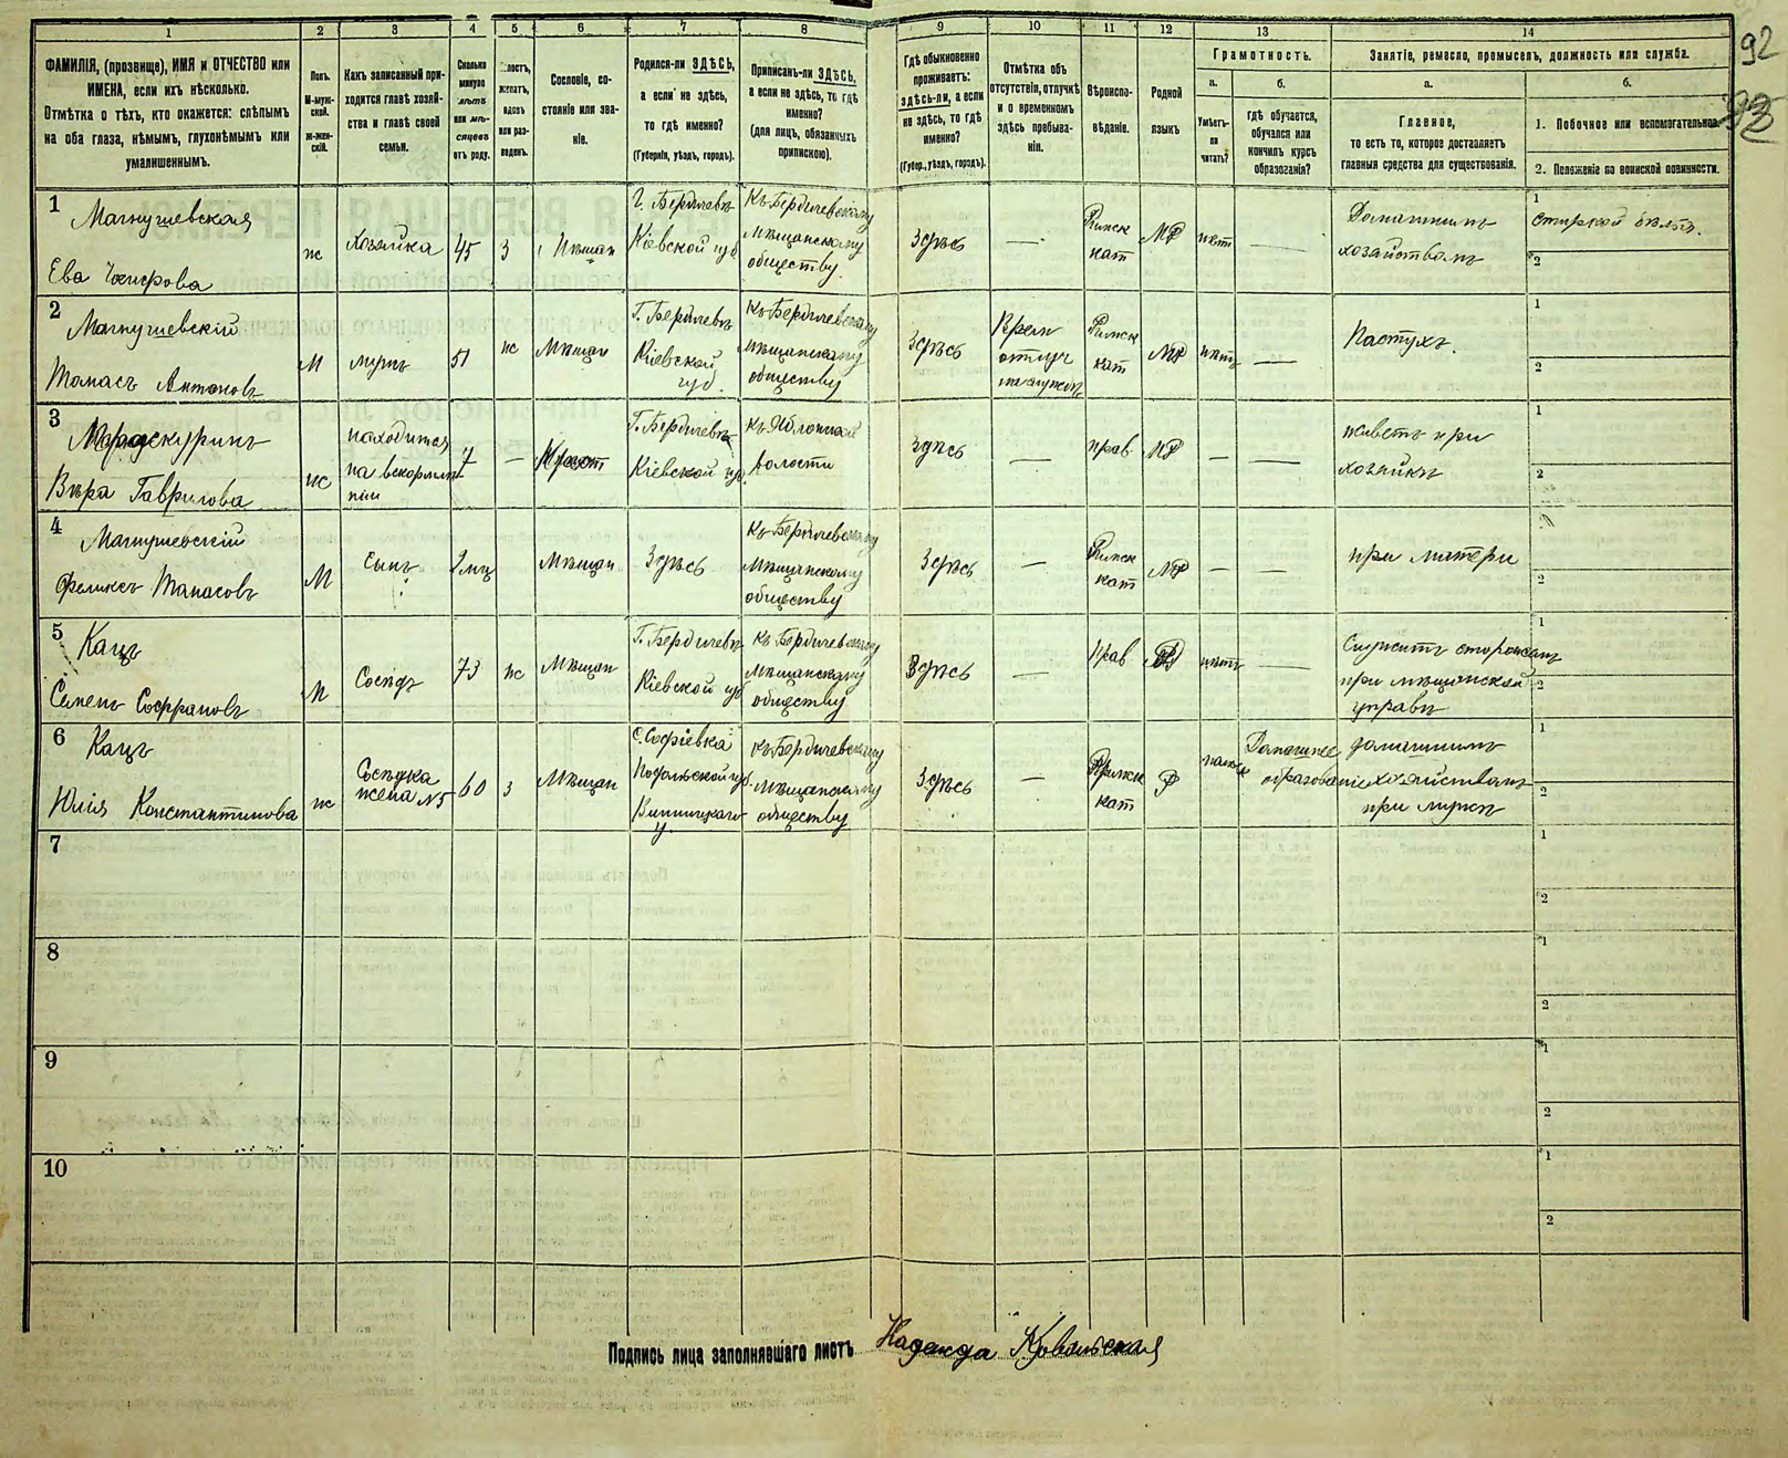 92
93
1 2 3 4 5 6 7 8 9 10 11 12 13 14
ФАМИЛІЯ, (прозвище), ИМЯ и ОТЧЕСТВО или
ИМЕНА, если ихъ нѣсколько.
Отмѣтка о тѣхъ, кто окажется: слѣпымъ
на оба глаза, нѣмымъ, глухонѣмымъ или
умалишеннымъ.
Полъ.
М-муж-
ской.
Ж-жен-
скій.
Какъ записанный при-
ходится главѣ хозяй-
ства и главѣ своей
семьи.
Сколько
минуло
лѣтъ
или мѣ-
сяцевъ
отъ роду.
женатъ,
вдовъ
или раз-
веденъ.
Сословіе, со-
стояніе или зва-
ніе.
Родился-ли ЗДѢСЬ,
а если не здѣсь,
то гдѣ именно?
(Губернія, уѣздъ, городъ).
Приписанъ-ли ЗДѢСЬ,
а если не здѣсь, то гдѣ
именно?
(для лицъ, обязанныхъ
припискою).
Гдѣ обыкновенно
проживаетъ:
здѣсь-ли, а если
не здѣсь, то гдѣ
именно?
(Губер., уѣздъ, городъ).
Отмѣтка объ
отсутствіи, отлучкѣ
и о временномъ
здѣсь пребыва-
ніи.
Вѣроиспо-
вѣданіе.
Родной
языкъ
Грамотность.
а.
Умѣетъ-
ли
читать?
б.
гдѣ обучается,
обучался или
кончилъ курсъ
образованія?
Занятіе, ремесло, промыселъ, должность или служба.
а.
Главное,
то есть то, которое доставляетъ
главныя средства для существованія.
б.
1. Побочное или вспомогательное.
2. Положеніе по воинской повинности.
1
Магнушевская
Ева
ж
Хозяйка
45
З
Мѣщан
Г. Бердичевъ
Кіевской губ
Къ Бердичевскому
мѣщанскому
обществу.
Здѣсь
—
Римск
кат
нѣтъ
—
Домашнимъ
хозяйствомъ
1
стиркой бѣлья.
2
2
Магнушевскій
Томасъ Антоновъ
М
мужъ
51
ж
Мѣщан
Г. Бердичевъ
Кіевской
губ.
Къ Бердичевскому
мѣщанскому
обществу
Здѣсь
Врем
отлуч
Римск
кат
нѣтъ
—
Пастухъ.
1
2
3
Вѣра Гаврилова
ж
находится
на вскормле
ніи
7
—
Г. Бердичевъ
Кіевской губ.
къ Яблонской
волости
Здѣсь
—
прав
—
—
живетъ при
хозяйкѣ
1
2
4
Магнушевскій
Феликсъ Томасовъ
М
Сынъ
2 мц
Мѣщан
Здѣсь
Къ Бердичевскому
мѣщанскому
обществу
Здѣсь
—
Римск
кат
—
—
при матери
2
5
Кацъ
Семенъ Софроновъ
М
Сосѣдъ
73
ж
Мѣщан
Г. Бердичевъ
Кіевской губ
къ Бердичевскому
мѣщанскому
обществу
Здѣсь
—
Прав
нѣтъ
—
Служитъ сторожемъ
при мѣщанской
управѣ
1
2
6
Кацъ
Юлія Константинова
ж
Сосѣдка
жена №5
60
З
Мѣщан
С. Софіевка
Подольской губ.
Винницкаго
у.
къ Бердичевскому
мѣщанскому
обществу
Здѣсь
—
Римск
кат
Р
Домашнее
образованіе
домашнимъ
хозяйствомъ
при мужѣ
1
2
7
1
2
8
1
2
9
1
2
10
1
2
Подпись лица заполнявшаго листъ Надежда Ковальская